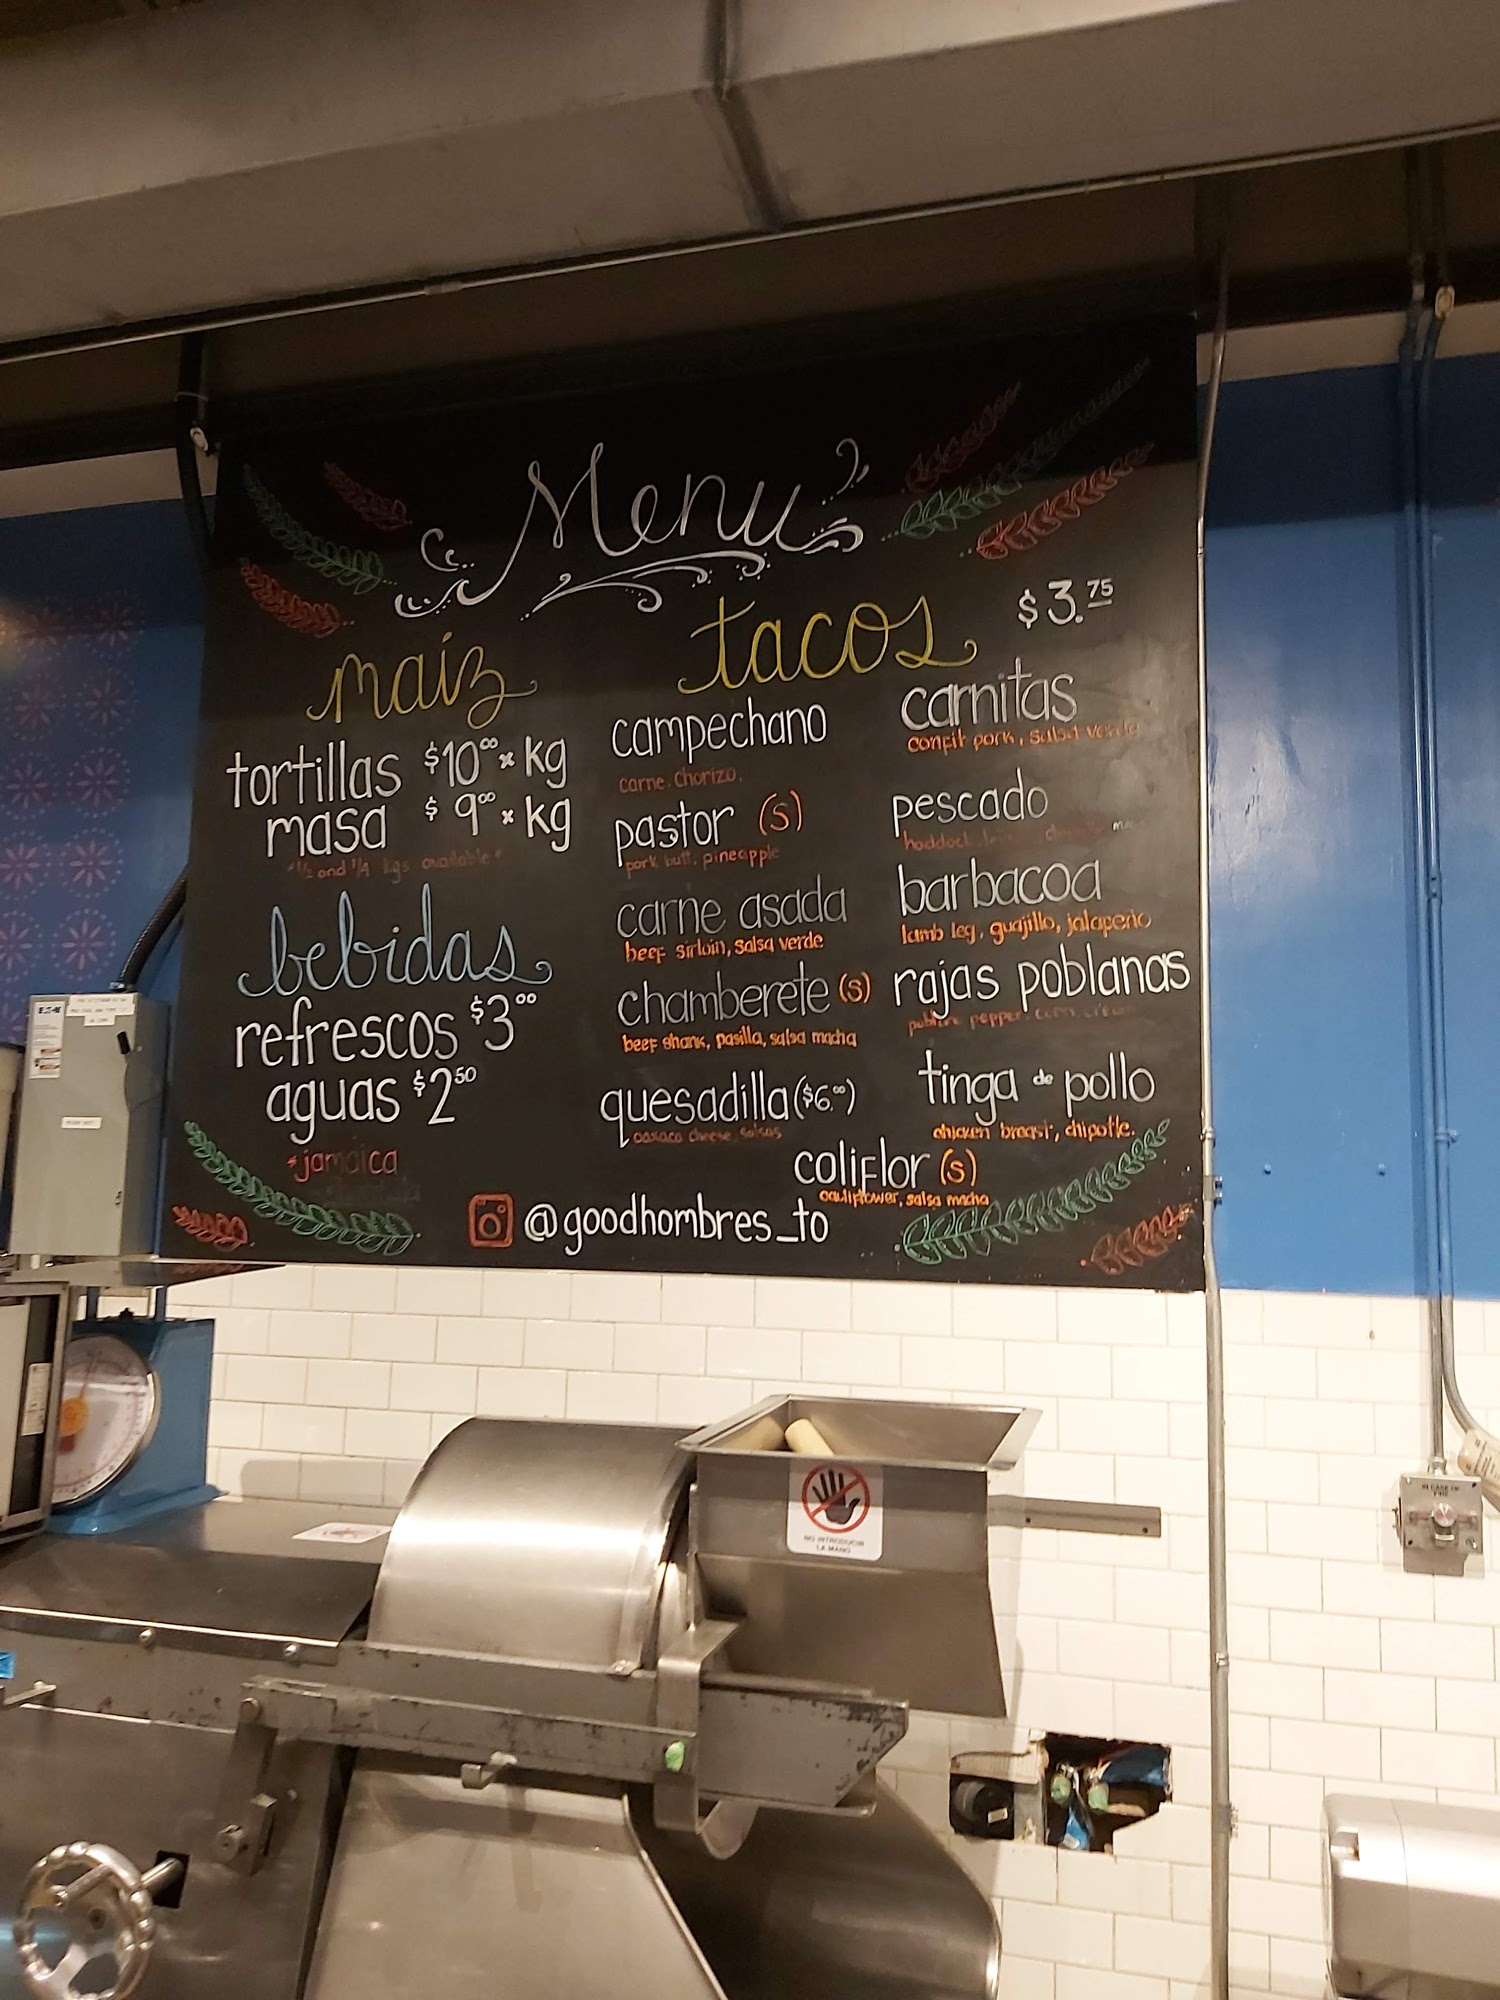 Menu
maiz
tortillas $10.00 x kg
masa $9.00 x kg
*1/2 and 1/4 kgs available*
bebidas
refrescos $3.00
aguas $2.50
*jamaica
tacos $3.75
campechano
carne, chorizo,
pastor (s)
pork butt, pineapple
carne asada
beef sirloin, salsa verde
chamberete (s)
beef shank, pasilla, salsa macha
quesadilla ($6.00)
oaxaca cheese, salsas
carnitas
confit pork, salsa verde
pescado
haddock,
barbacoa
lamb leg, guajillo, jalapeño
rajas poblanas
poblano pepper, corn, cream
tinga de pollo
chicken breast, chipotle.
coliflor (s)
cauliflower, salsa macha
@goodhombres_to
NO INTRODUCIR
LA MANO
IN CASE OF
FIRE